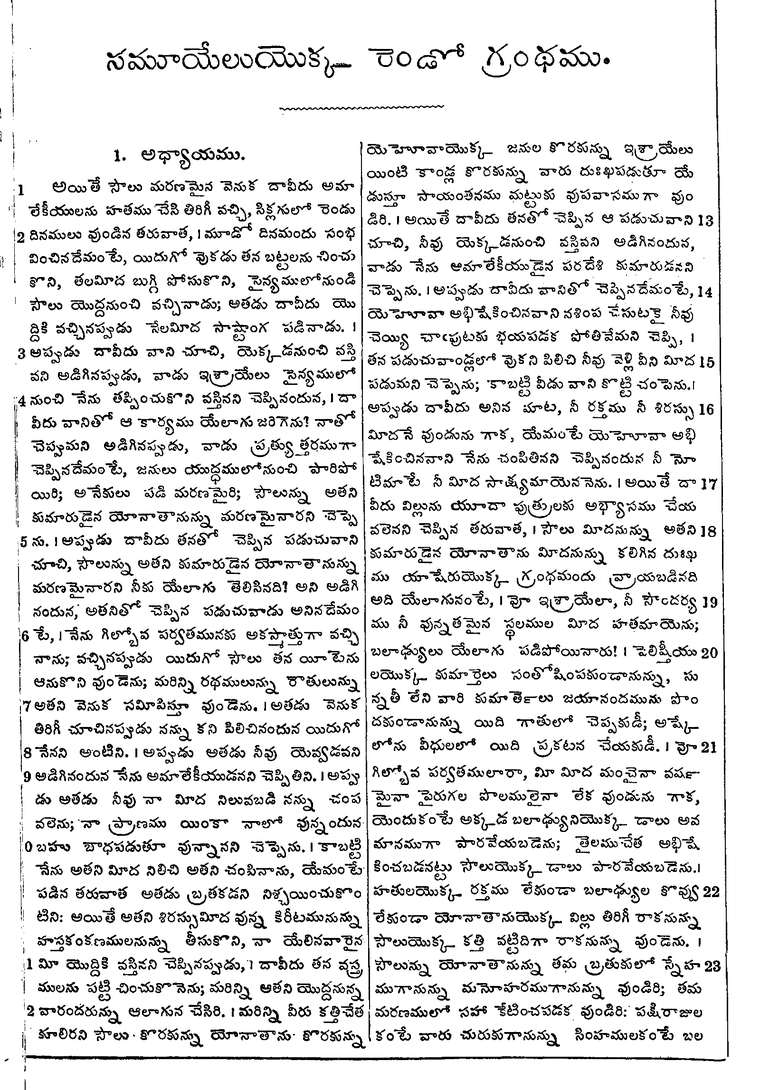 సమూయేలుయొక్క రెండో గ్రంథము.
1. అధ్యాయము.
1 అయితే సౌలు మరణమైన వెనుక దావీదు అమా
లేకీయులను హతము చేసి తిరిగీ వచ్చి, సిక్లగులో రెండు
2 దినములు వుండిన తరువాత, । మూడో దినమందు సంభ
వించినదేమంటే, యిదుగో వుకడు తన బట్టలను చించు
కొని, తలమీద బుగ్గి పోసుకొని, సైన్యములోనుండి
సౌలు యొద్దనుంచి వచ్చినాడు; అతడు దావీదు యొ
ద్దికి వచ్చినప్పుడు నేలమీద సాష్టాంగ పడినాడు. ।
3 అప్పుడు దావీదు వాని చూచి, యెక్కడనుంచి వస్తి
వని అడిగినప్పుడు, వాడు ఇశ్రాయేలు సైన్యములో
4 నుంచి నేను తప్పించుకొని వస్తినని చెప్పినందున, । దా
వీదు వానితో ఆ కార్యము యేలాగు జరిగెను? నాతో
చెప్పుమని అడిగినప్పుడు, వాడు ప్రత్యుత్తరముగా
చెప్పినదేమంటే, జనులు యుద్ధములోనుంచి పారిపో
యిరి; అనేకులు పడి మరణమైరి; సౌలున్ను అతని
కుమారుడైన యోనాతానున్ను మరణమైనారని చెప్పె
5 ను. । అప్పుడు దావీదు తనతో చెప్పిన పడుచువాని
చూచి, సౌలున్ను అతని కుమారుడైన యోనాతానున్ను
మరణమైనారని నీకు యేలాగు తెలిసినది? అని అడిగి
నందున, అతనితో చెప్పిన పడుచువాడు అనినదేమం
6 టే, । నేను గిల్బోవ పర్వతమునకు అకస్మాత్తుగా వచ్చి
నాను; వచ్చినప్పుడు యిదుగో సౌలు తన యీటెను
ఆనుకొని వుండెను; మరిన్ని రథములున్ను రాతులున్ను
7 అతని వెనుక సమీపిస్తూ వుండెను. । అతడు వెనుక
తిరిగీ చూచినప్పుడు నన్ను కని పిలిచినందున యిదుగో
8 నేనని అంటిని. । అప్పుడు అతడు నీవు యెవ్వడవని
9 అడిగినందున నేను అమాలేకీయుడనని చెప్పితిని. । అప్పు
డు అతడు నీవు నా మీద నిలువబడి నన్ను చంప
వలెను; నా ప్రాణము యింకా నాలో వున్నందున
0 బహు బాధపడుతూ వున్నానని చెప్పెను. । కాబట్టి
నేను అతని మీద నిలిచి అతని చంపినాను, యేమంటే
పడిన తరువాత అతడు బ్రతకడని నిశ్చయించుకొం
టిని: అయితే అతని శిరస్సుమీద వున్న కిరీటమునున్ను
హస్తకంకణములనున్ను తీసుకొని, నా యేలినవారైన
1 మీ యొద్దికి వస్తినని చెప్పినప్పుడు, । దావీదు తన వస్త్ర
ములను పట్టి చించుకొనెను; మరిన్ని అతని యొద్దనున్న
2 వారందరున్ను ఆలాగున చేసిరి. । మరిన్ని వీరు కత్తిచేత
కూలిరని సౌలు కొరకున్ను యోనాతాను కొరకున్ను
యెహోవాయొక్క జనుల కొరకున్ను ఇశ్రాయేలు
యింటి కాండ్ల కొరకున్ను వారు దుఃఖపడుతూ యే
డుస్తూ సాయంతనము మట్టుకు వుపవాసముగా వుం
డిరి. । అయితే దావీదు తనతో చెప్పిన ఆ పడుచువాని 13
చూచి, నీవు యెక్కడనుంచి వస్తివని అడిగినందున,
వాడు నేను ఆమాలేకీయుడైన పరదేశి కుమారుడనని
చెప్పెను. । అప్పుడు దావీదు వానితో చెప్పినదేమంటే, 14
యెహోవా అభిషేకించినవాని నశింప చేసుటకై నీవు
చెయ్యి చాపుటకు భయపడక పోతివేమని చెప్పి, ।
తన పడుచువాండ్లలో వుకని పిలిచి నీవు వెళ్లి వీని మీద 15
పడుమని చెప్పెను; కాబట్టి వీడు వాని కొట్టి చంపెను. ।
అప్పుడు దావీదు అనిన మాట, నీ రక్తము నీ శిరస్సు 16
మీదనే వుండును గాక, యేమంటే యెహోవా అభి
షేకించినవాని నేను చంపితినని చెప్పినందున నీ నో
టిమాటే నీ మీద సాక్ష్యమాయెననెను. । అయితే దా 17
వీదు విల్లును యూదా పుత్రులకు అభ్యాసము చేయ
వలెనని చెప్పిన తరువాత, । సౌలు మీదనున్ను అతని 18
కుమారుడైన యోనాతాను మీదనున్ను కలిగిన దుఃఖ
ము యాషేరుయొక్క గ్రంథమందు వ్రాయబడినది
అది యేలాగునంటే, । వో ఇశ్రాయేలా, నీ సౌందర్య 19
ము నీ వున్నతమైన స్థలముల మీద హతమాయెను;
బలాఢ్యులు యేలాగు పడిపోయినారు! । పెలిష్తీయు 20
లయొక్క కుమార్తెలు సంతోషింపకుండానున్ను, సు
న్నతీ లేని వారి కుమార్తెలు జయానందమును పొం
దకుండానున్ను యిది గాతులో చెప్పకుడీ; అష్కే
లోను వీధులలో యిది ప్రకటన చేయకుడీ. । వో 21
గిల్బోవ పర్వతములారా, మీ మీద మంచైనా వర్ష
మైనా పైరుగల పొలములైనా లేక వుండును గాక,
యెందుకంటే అక్కడ బలాఢ్యునియొక్క డాలు అవ
మానముగా పారవేయబడెను; తైలముచేత అభిషే
కించబడనట్టు సౌలుయొక్క డాలు పారవేయబడెను. ।
హతులయొక్క రక్తము లేకుండా బలాఢ్యుల కొవ్వు 22
లేకుండా యోనాతానుయొక్క విల్లు తిరిగీ రాకనున్ను
సౌలుయొక్క కత్తి వట్టిదిగా రాకనున్ను వుండెను. ।
సౌలున్ను యోనాతానున్ను తమ బ్రతుకులో స్నేహ 23
ముగానున్ను మనోహరముగానున్ను వుండిరి; తమ
మరణములో సహా కేటించపడక వుండిరి: పక్షిరాజుల
కంటే వారు చురుకుగానున్ను సింహములకంటే బల